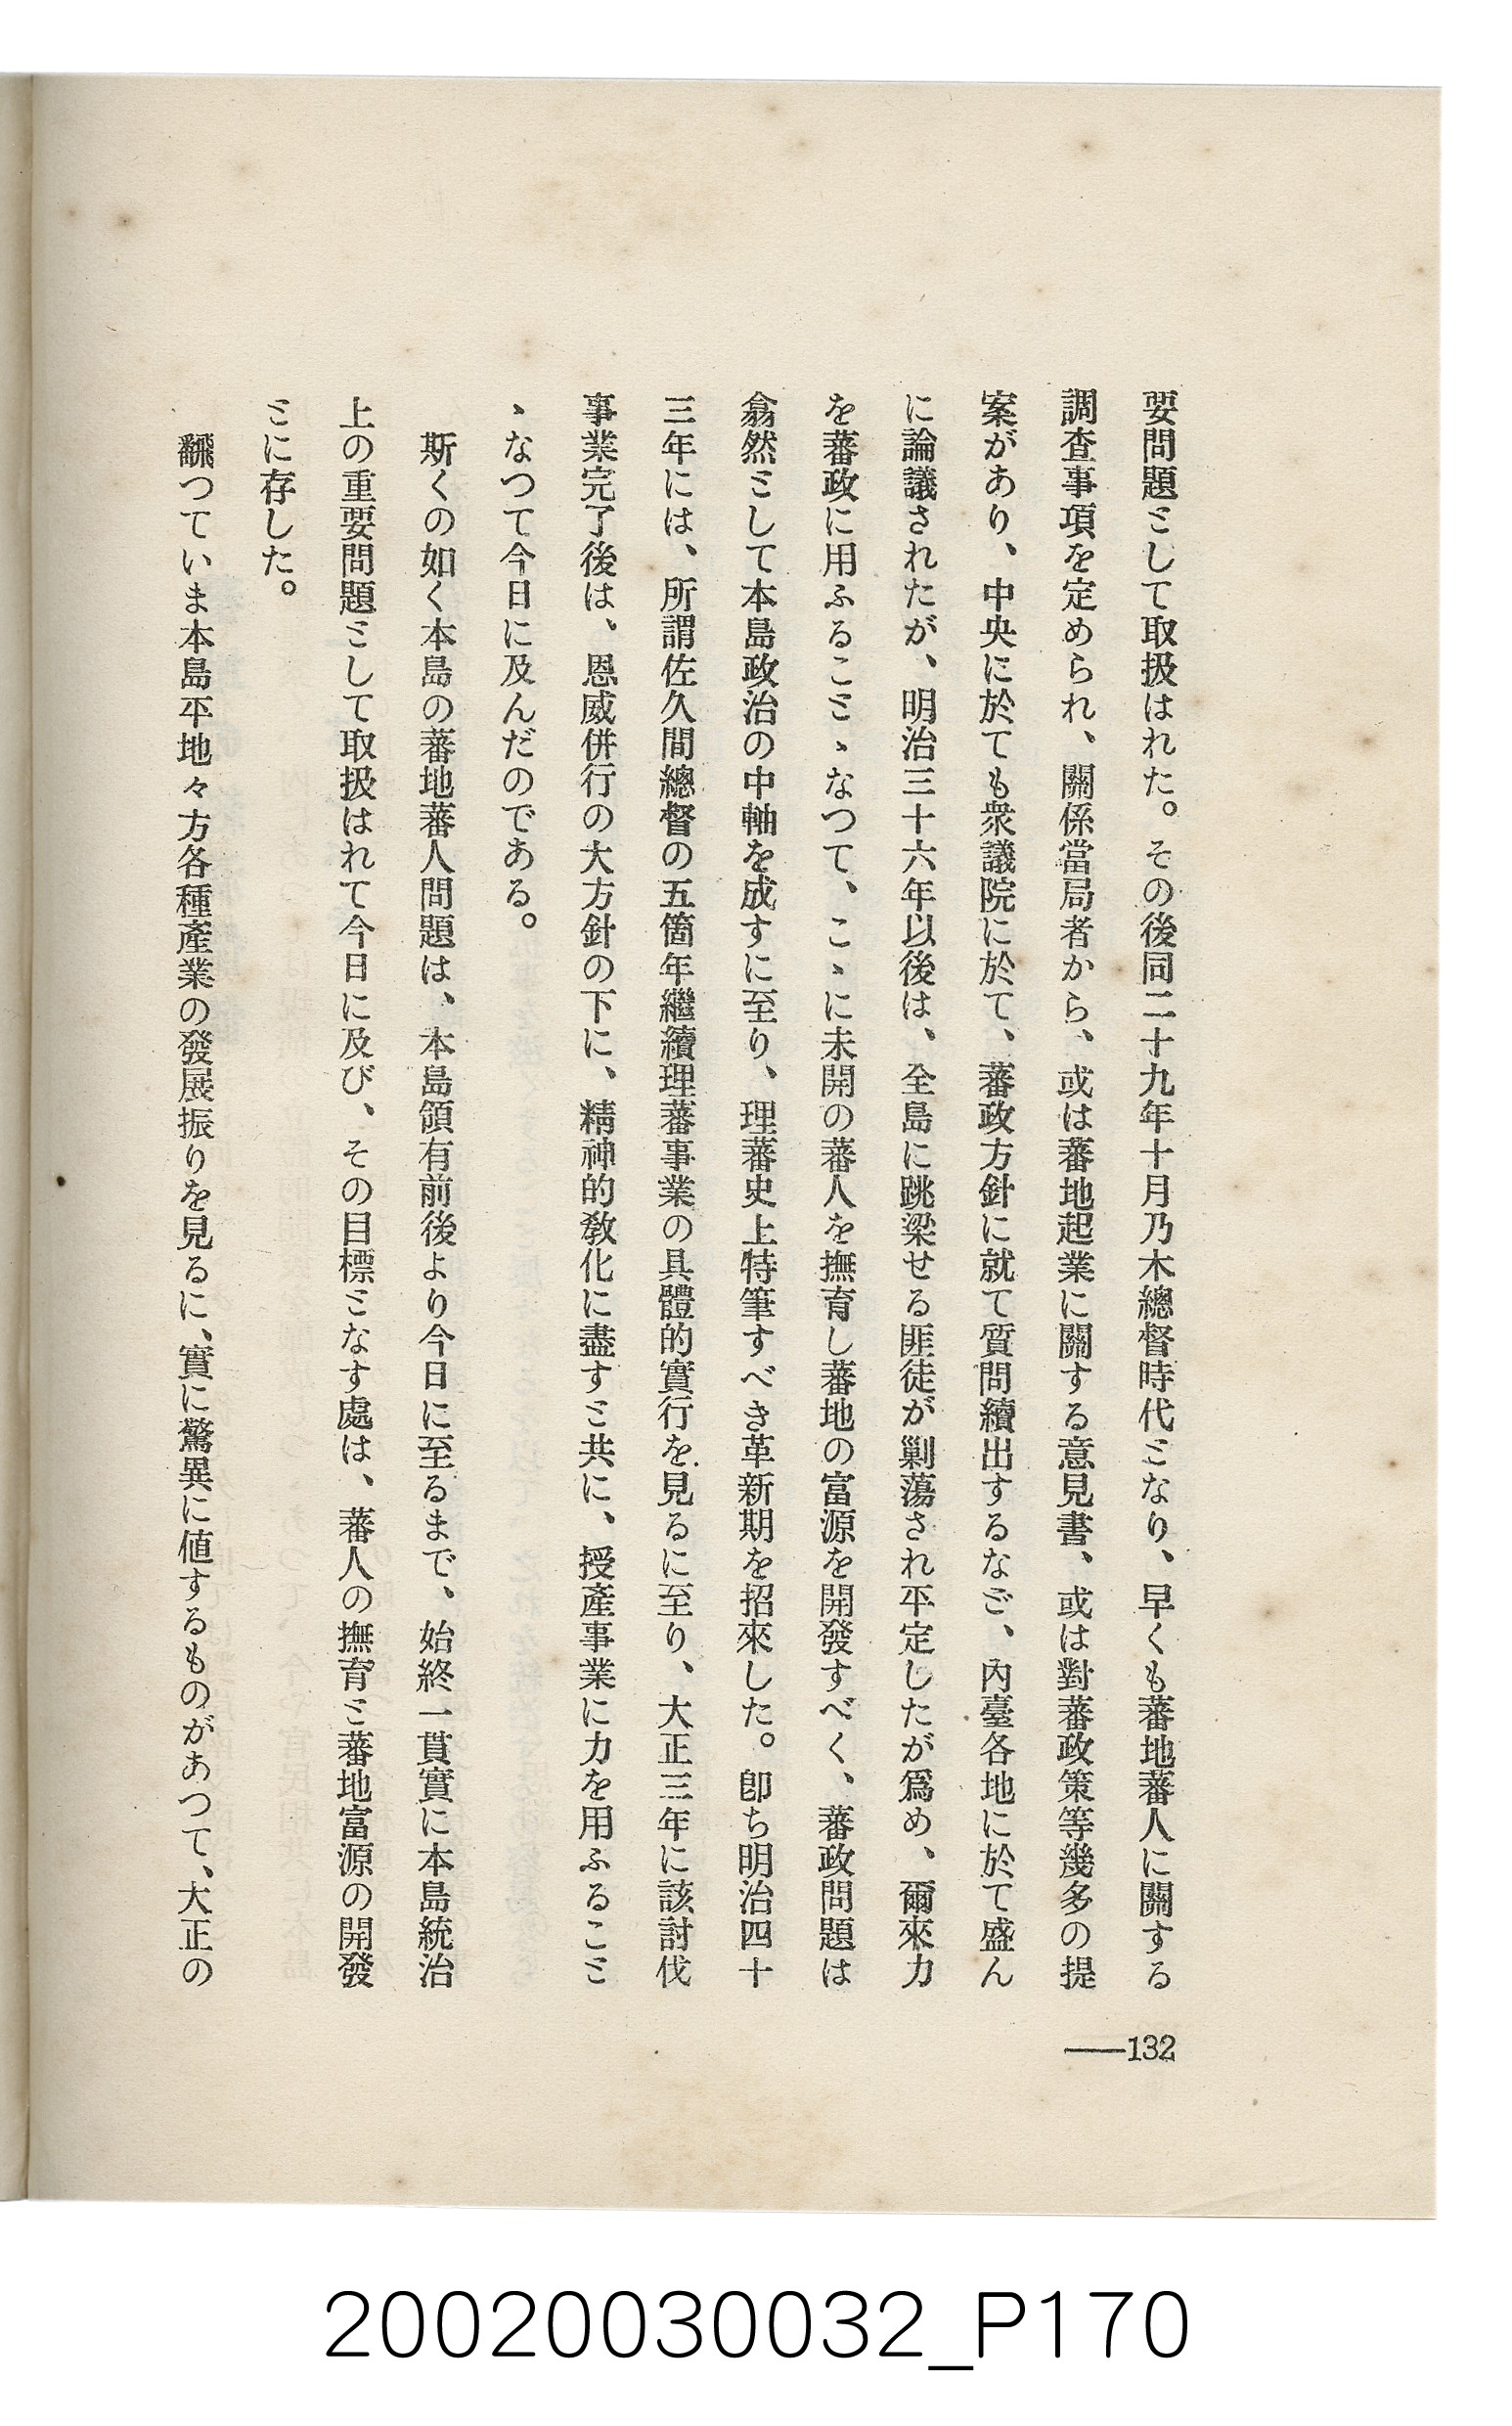 要問題ミして取扱はれた。その後同二十九年十月乃木總督時代ミなり、早くも蕃地蕃人に關する
調査事項を定められ、關係當局者から、或は蕃地起業に關する意見書、或は對蕃政策等幾多の提
案があり、中央に於ても衆議院に於て、蕃政方針に就て質問續出するなど、內臺各地に於て盛ん
に論議されたが、明治三十六年以後は、全島に跳梁せる匪徒が剿蕩され平定したが爲め、爾來力
を蕃政に用ふるこミゝなつて、こゝに未開の蕃人を撫育し蕃地の富源を開發すべく、蕃政問題は
翕然ミして本島政治の中軸を成すに至り、理蕃史上特筆すべき革新期を招來した。卽ち明治四十
三年には、所謂佐久間總督の五箇年繼續理蕃事業の具體的實行を見るに至り、大正三年に該討伐
事業完了後は、恩威併行の大方針の下に、精神的敎化に盡すミ共に、授產事業に力を用ふるこミ
ゝなつて今日に及んだのである。
斯くの如く本島の蕃地蕃人問題は、本島領有前後より今日に至るまで、始終一貫實に本島統治
上の重要問題ミして取扱はれて今日に及び、その目標ミなす處は、蕃人の撫育ミ蕃地富源の開發
ミに存した。
飜つていま本島平地々方各種產業の發展振りを見るに、實に驚異に値するものがあつて、大正の
——132
20020030032_P170